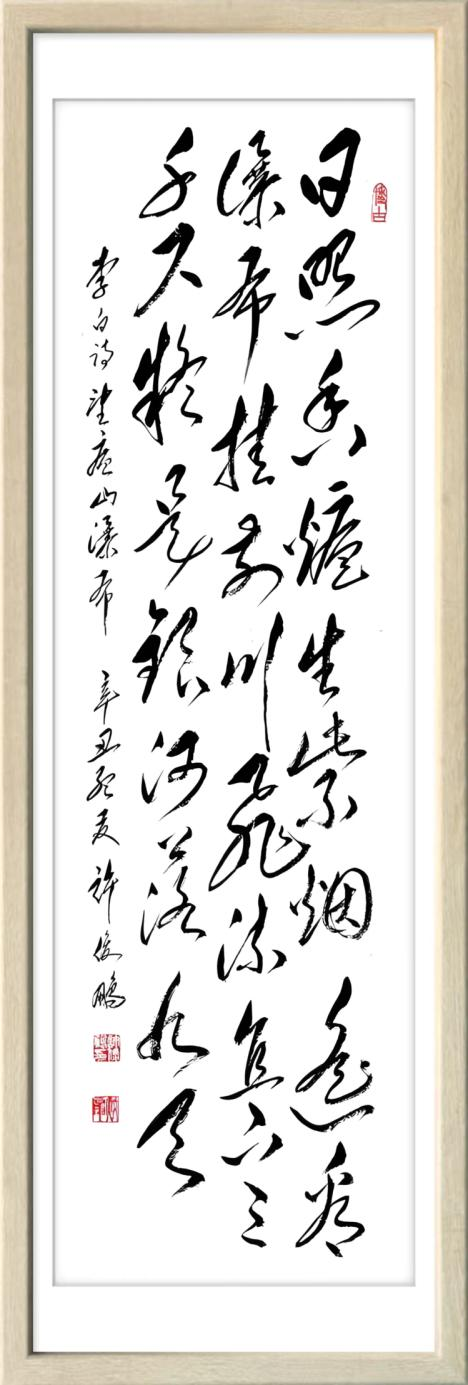 日照香爐生紫烟遥看
瀑布挂前川飛流直下三
千尺疑是銀河落九天
李白诗望廬山瀑布 辛丑夏 许俊鹏